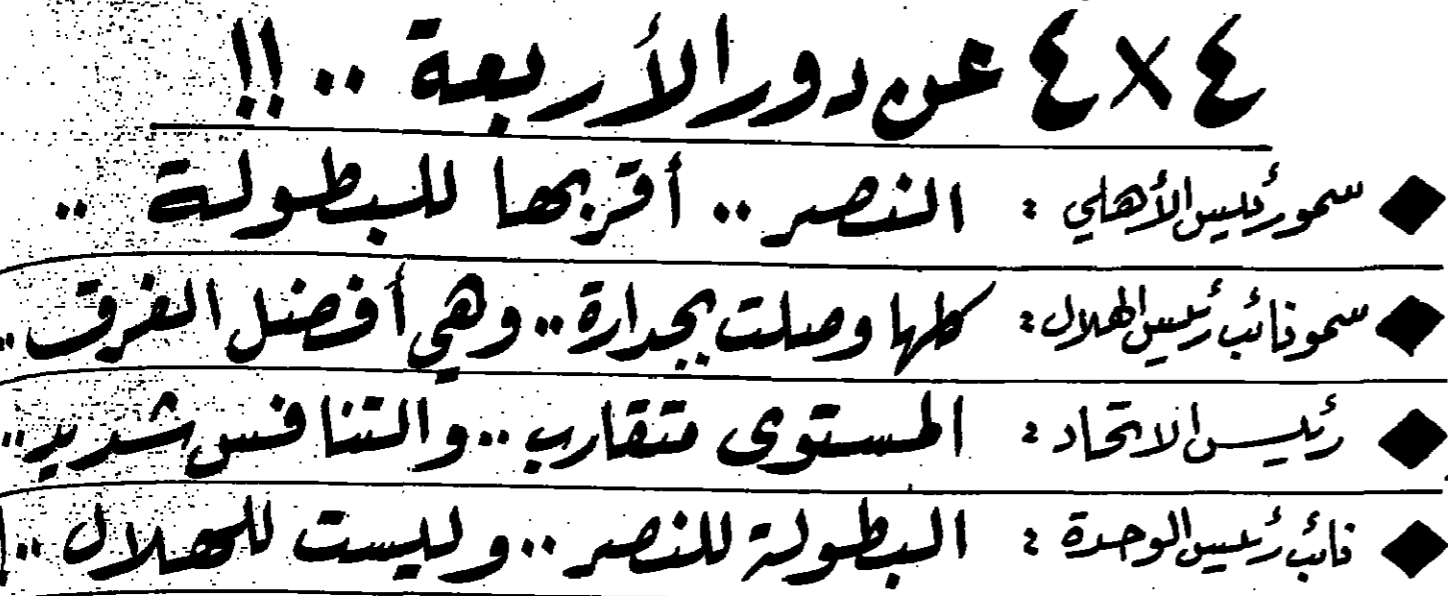 ٤×٤ عن دور الأربعة ..!!
سمو رئيس الأهلي : النصر .. أقربها للبطولة ..
سمو نائب رئيس الهلال : كلها وصلت بجدارة .. وهي أفضل الفرق ..
رئيس الاتحاد : المستوى متقارب .. والتنافس شديد ..
نائب رئيس الوحدة : البطولة للنصر .. وليست للهلال .. !